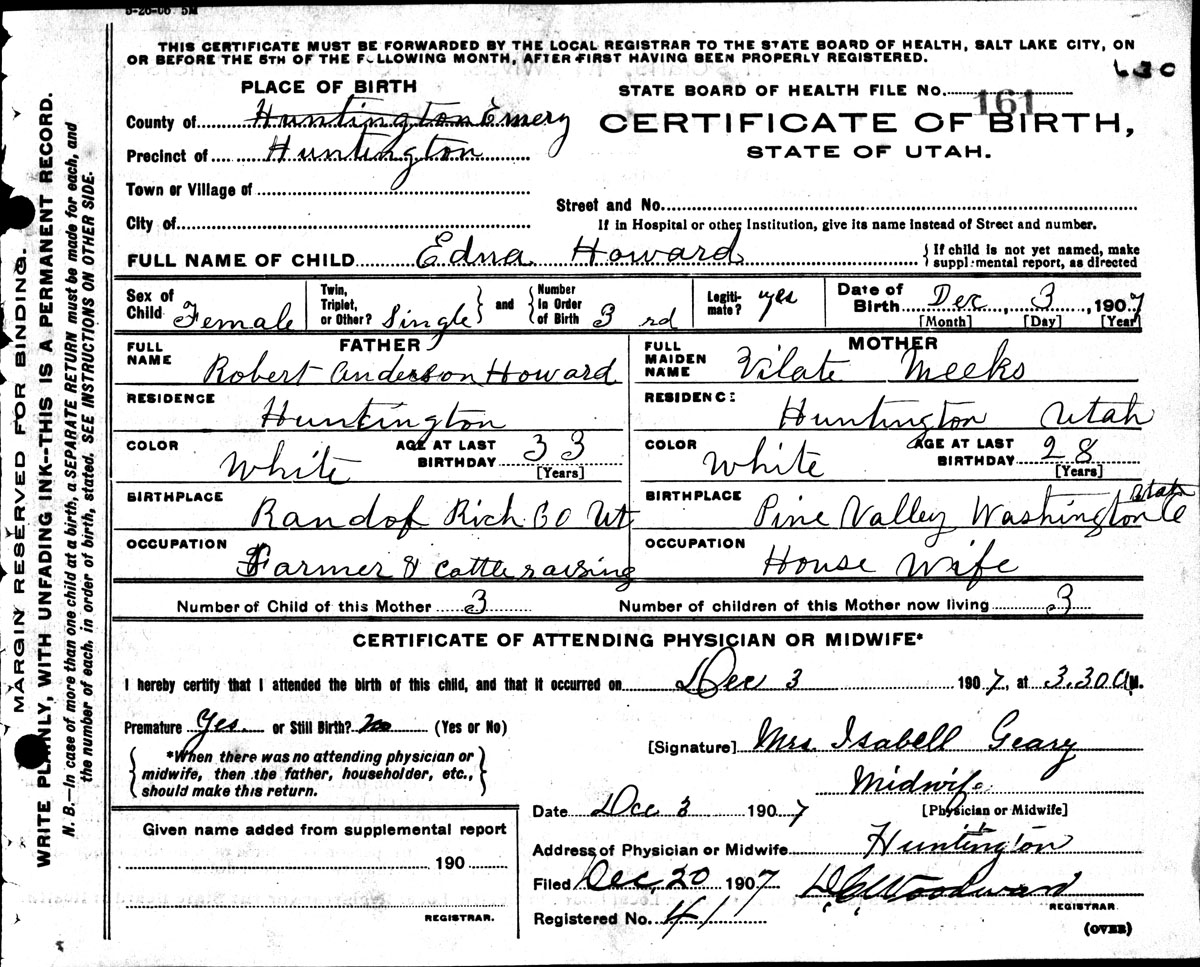 THIS CERTIFICATE MUST BE FORWARDED BY THE LOCAL REGISTRAR TO THE STATE BOARD OF HEALTH, SALT LAKE CITY, ON
OR BEFORE THE 5TH OF THE FOLLOWING MONTH, AFTER FIRST HAVING BEEN PROPERLY REGISTERED.
PLACE OF BIRTH
STATE BOARD OF HEALTH FILE No. 161
County of Huntington Emery
CERTIFICATE OF BIRTH,
Precinct of Huntington
STATE OF UTAH.
Town or Village of
Street and No.
City of
If in Hospital or other Institution, give its name instead of Street and number.
FULL NAME OF CHILD Edna Howard
{ If child is not yet named, make
supplemental report, as directed
Sex of Child Female
Twin, Triplet, or Other? Single } and { Number In Order of Birth 3 rd
Legitimate? yes
Date of Birth Dec 3, 1907
[Month] [Day] [Year]
FATHER
FULL NAME Robert Anderson Howard
RESIDENCE Huntington
COLOR White AGE AT LAST BIRTHDAY 33 [Years]
BIRTHPLACE Randof Rich Co Ut
OCCUPATION Farmer & cattle raising
MOTHER
FULL MAIDEN NAME Vilate Meeks
RESIDENCE Huntington Utah
COLOR White AGE AT LAST BIRTHDAY 28 [Years]
BIRTHPLACE Pine Valley Washington Co Utah
OCCUPATION House Wife
Number of Child of this Mother 3 Number of children of this Mother now living 3
CERTIFICATE OF ATTENDING PHYSICIAN OR MIDWIFE*
I hereby certify that I attended the birth of this child, and that it occurred on Dec 3 1907, at 3.30 A M.
Premature Yes. or Still Birth? No (Yes or No)
{ *When there was no attending physician or
midwife, then the father, householder, etc.,
should make this return. }
[Signature] Mrs. Isabell Geary
Midwife
[Physician or Midwife]
Date Dec 3 1907
Address of Physician or Midwife Huntington
Filed Dec. 20 1907 D.C. Woodward
REGISTRAR
Registered No. 417
(OVER)
Given name added from supplemental report
190
REGISTRAR.
MARGIN RESERVED FOR BINDING.
WRITE PLAINLY, WITH UNFADING INK--THIS IS A PERMANENT RECORD.
N. B.—In case of more than one child at a birth, a SEPARATE RETURN must be made for each, and
the number of each, in order of birth, stated. SEE INSTRUCTIONS ON OTHER SIDE.